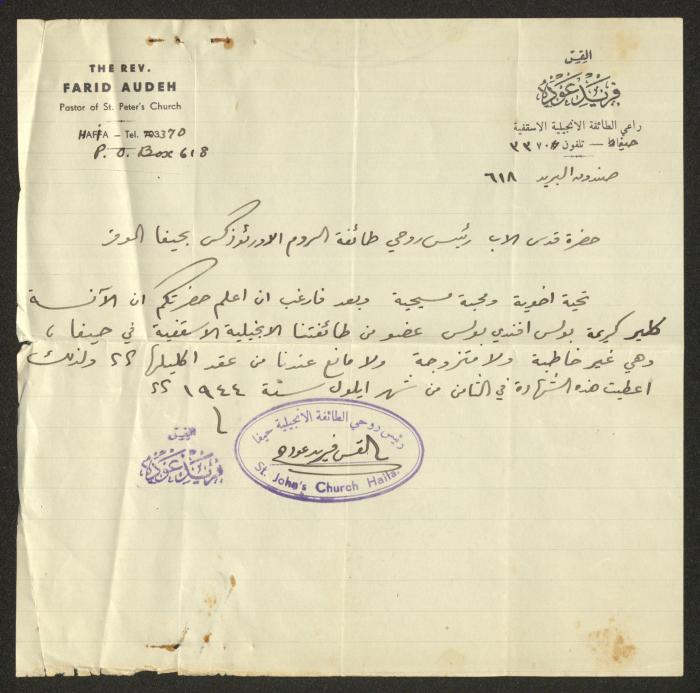 THE REV.
FARID AUDEH
Pastor of St. Peter's Church
HAIFA – Tel. 3370
P. O. Box 618
القس
فريد عوده
راعي الطائفة الانجيلية الاسقفية
حيفا — تلفون ٣٣٧٠
صندوق البريد ٦١٨
حضرة قدس الاب رئيس روحي طائفة الروم الاورثوذكس بحيفا الموقر
تحية اخوية ومحبة مسيحية وبعد فارغب ان اعلم حضرتكم ان الآنسة
كلير كريمة بولس افندي بولس عضو من طائفتنا الانجيلية الاسقفية في حيفا،
وهي غير خاطبة ولا متزوجة ولا مانع عندنا من عقد اكليلها ولذلك
اعطيت هذه الشهادة في الثامن من شهر ايلول سنة ١٩٤٤
القس
فريد عوده
رئيس روحي الطائفة الانجيلية حيفا
القس فريد عوده
St. John's Church Haifa.